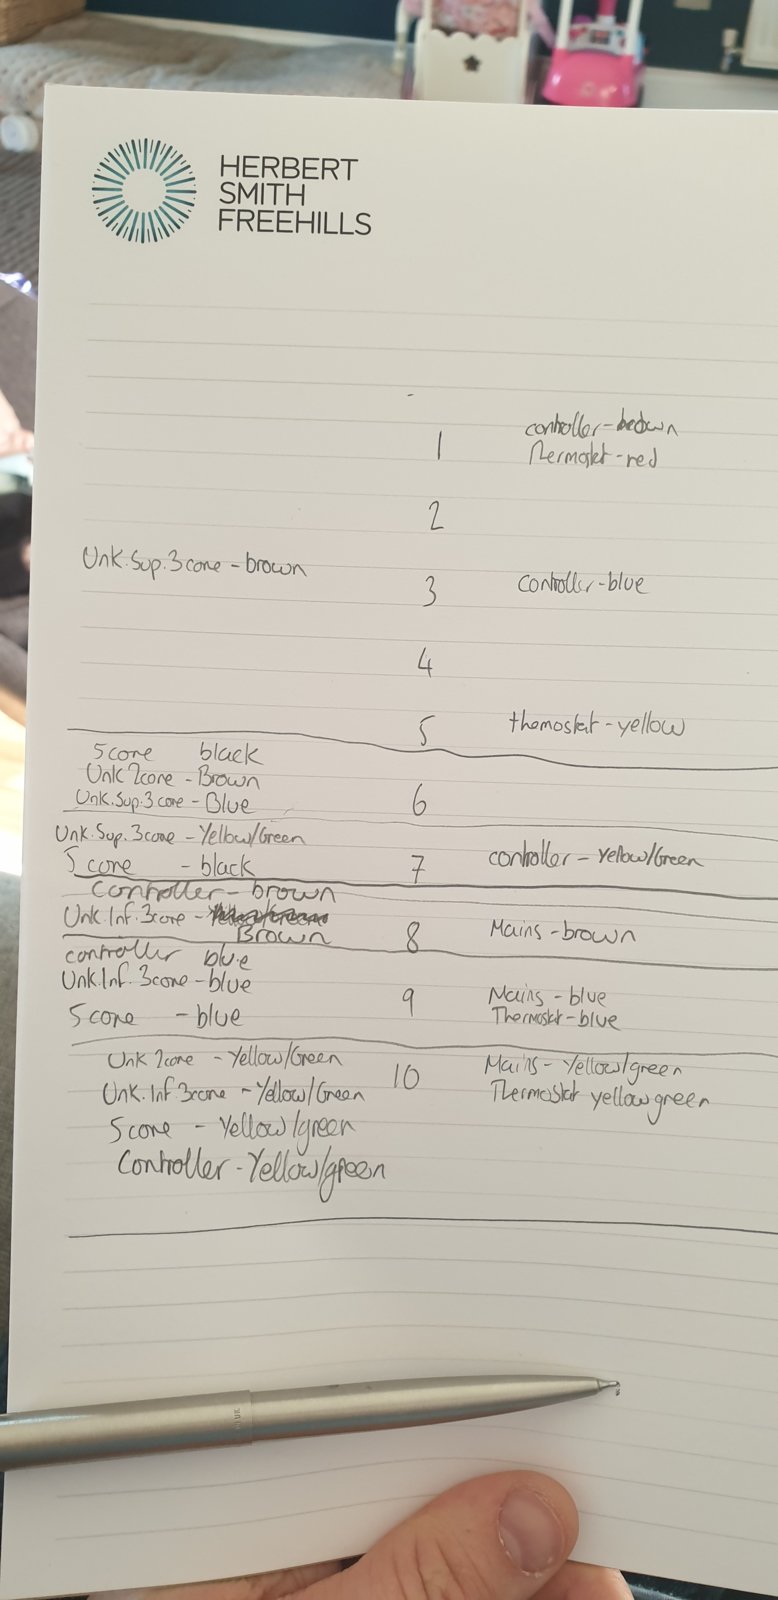 HERBERT
SMITH
FREEHILLS
controller - brown
1
Thermostat - red
2
Unk. Sup. 3 core - brown
3
controller - blue
4
5
themostat - yellow
5 core black
Unk 2 core - Brown
Unk. Sup. 3 core - Blue
6
Unk. Sup. 3 core - Yellow/Green
5 core - black
7
controller - Yellow/Green
Controller - brown
Unk. Inf. 3 core - Brown
8
Mains - brown
controller blue
Unk. Inf. 3 core - blue
5 core - blue
9
Mains - blue
Thermostat - blue
Unk 2 core - Yellow/Green
Unk. Inf. 3 core - Yellow/Green
5 core - Yellow/green
Controller - Yellow/green
10
Mains - Yellow/green
Thermostat yellow green